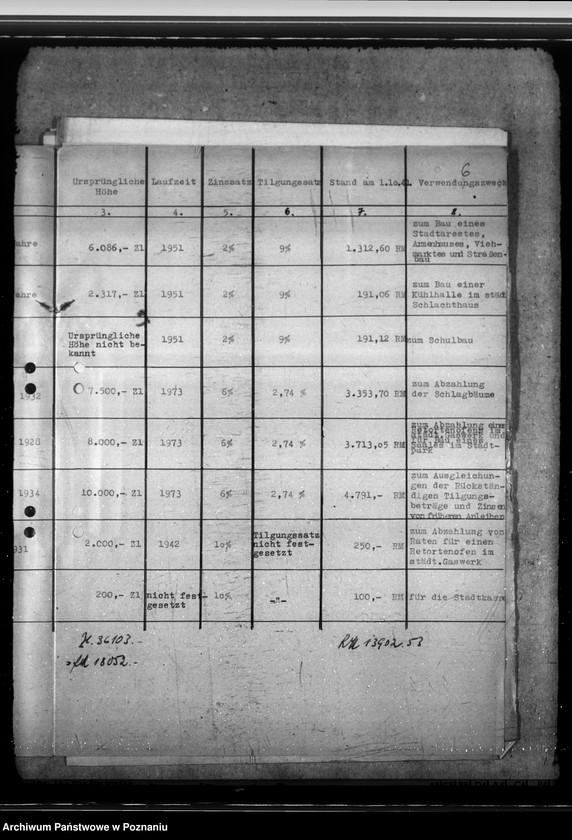 6
Ursprüngliche Höhe Laufzeit Zinssatz Tilgungssatz Stand am Verwendungszweck
3. 4. 5. 6. 7. 8.
ahre 6.086,- Zl 1951 2% 9% 1.312,60 RM zum Bau eines
Stadtarestes,
Armenhauses, Vieh-
marktes und Straßen-
bau
ahre 2.317,- Zl 1951 2% 9% 191,06 RM zum Bau einer
Kühlhalle im städt
Schlachthaus
Ursprüngliche
Höhe nicht be-
kannt 1951 2% 9% 191,12 RM zum Schulbau
1932 7.500,- Zl 1973 6% 2,74 % 3.353,70 RM zum Abzahlung
der Schlagbäume
1928 8.000,- Zl 1973 6% 2,74 % 3.713,05 RM zum Abzahlung eines
Retortenofens im
städt.Gaswerk und
Saales im Stadt-
park
1934 10.000,- Zl 1973 6% 2,74 % 4.791,- RM zum Ausgleichun-
gen der Rückstän-
digen Tilgungs-
beträge und Zinsen
von früheren Anleihen
931 2.000,- Zl 1942 10% Tilgungssatz
nicht fest-
gesetzt 250,- RM zum Abzahlung von
Raten für einen
Retortenofen im
städt.Gaswerk
200,- Zl nicht fest-
gesetzt 10% -"- 100,- RM für die Stadtkasse
36103.-
18052.-
RM 13902.53
Archiwum Państwowe w Poznaniu